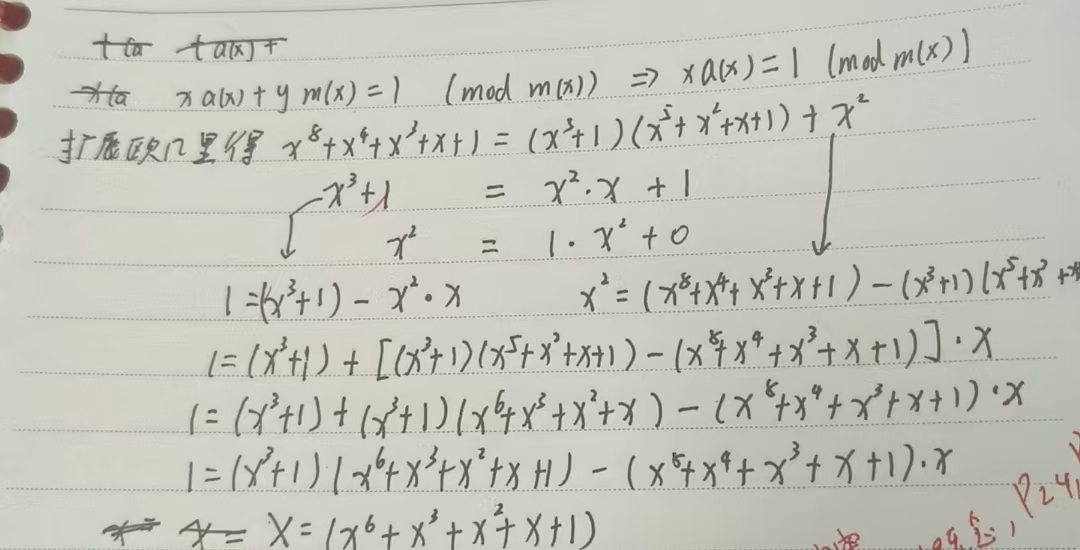 x a(x) + y m(x) = 1 (mod m(x)) ⇒ x a(x) = 1 (mod m(x)]
扩展欧几里得 x⁸+x⁴+x³+x+1 = (x³+1)(x⁵+x²+x+1) + x²
x³+1 = x²·x + 1
x² = 1·x² + 0
1=(x³+1) - x²·x x² = (x⁸+x⁴+x³+x+1) - (x³+1)(x⁵+x²+x
1=(x³+1) + [(x³+1)(x⁵+x²+x+1) - (x⁸+x⁴+x³+x+1)]·x
1=(x³+1)+(x³+1)(x⁶+x³+x²+x) - (x⁸+x⁴+x³+x+1)·x
1=(x³+1)(x⁶+x³+x²+x+1) - (x⁸+x⁴+x³+x+1)·x
X=(x⁶+x³+x²+x+1)
P241